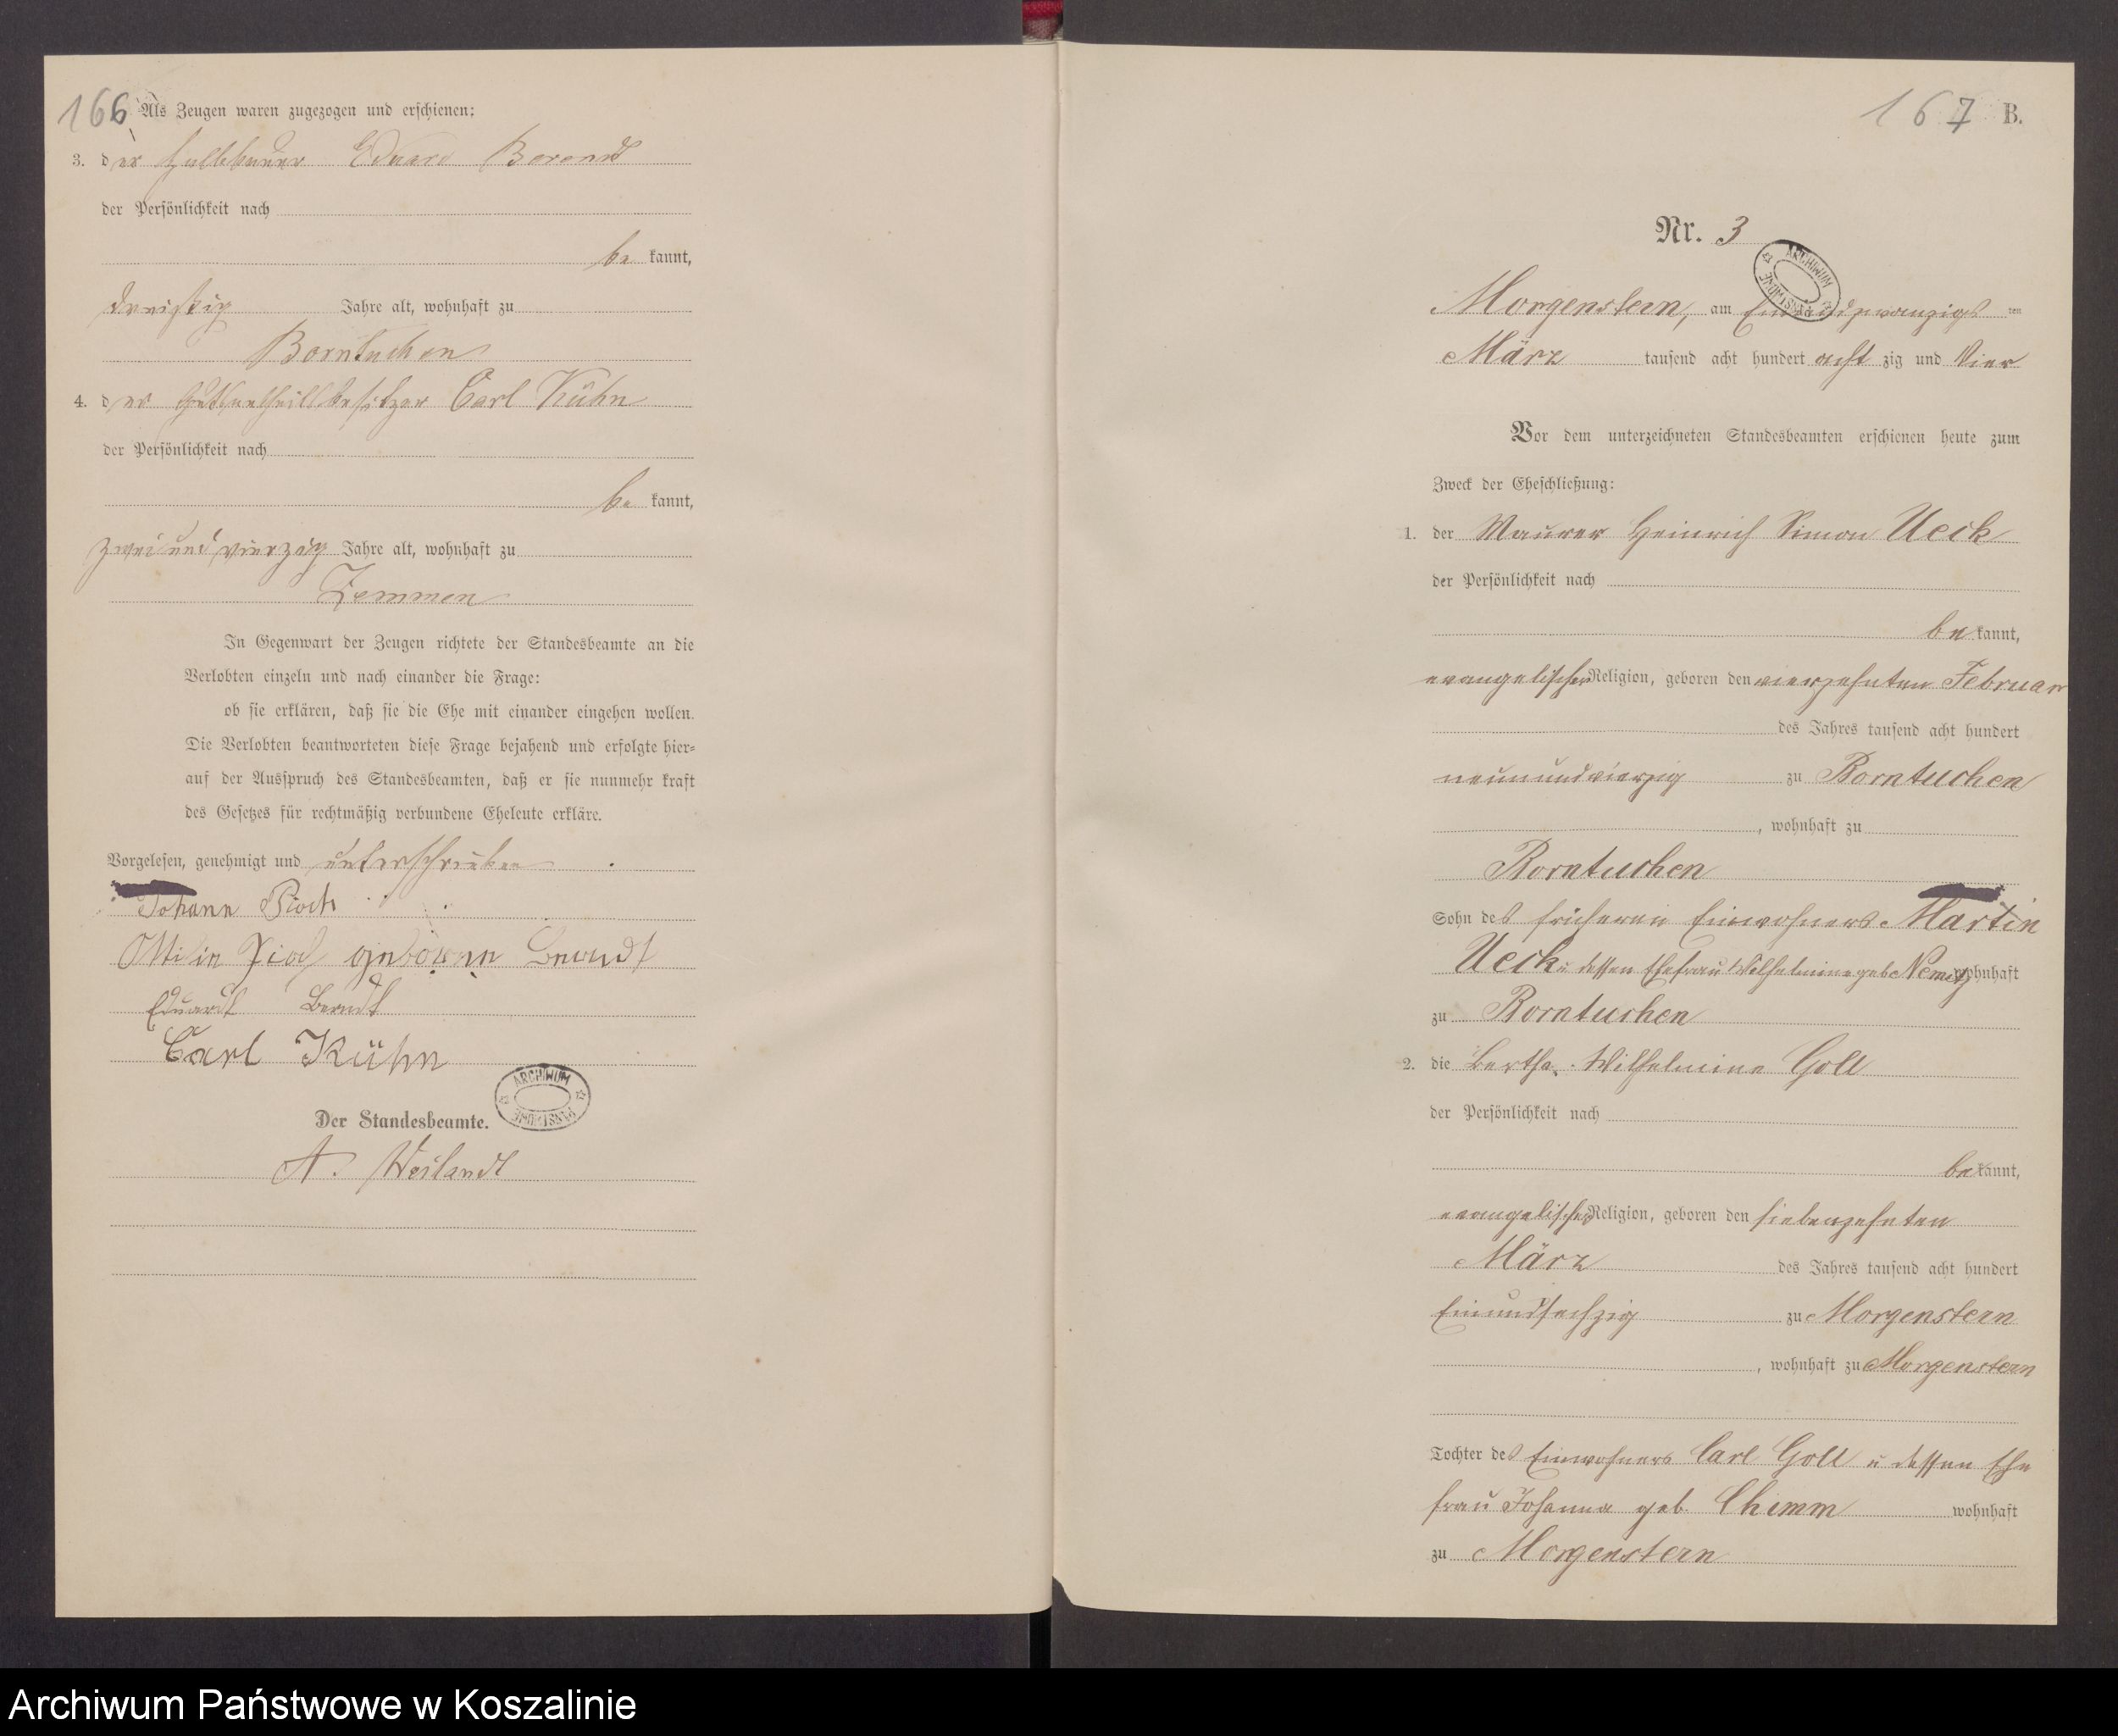 166
Als Zeugen waren zugezogen und erschienen:
3. der Halbbauer Eduard Berendt
der Persönlichkeit nach
be kannt,
dreißig Jahre alt, wohnhaft zu
Borntuchen
4. der Carl Kühn
der Persönlichkeit nach
be kannt,
zweiundvierzig Jahre alt, wohnhaft zu
Zemmen
In Gegenwart der Zeugen richtete der Standesbeamte an die
Verlobten einzeln und nach einander die Frage:
ob sie erklären, daß sie die Ehe mit einander eingehen wollen.
Die Verlobten beantworteten diese Frage bejahend und erfolgte hier-
auf der Ausspruch des Standesbeamten, daß er sie nunmehr kraft
des Gesetzes für rechtmäßig verbundene Eheleute erkläre.
Vorgelesen, genehmigt und unterschrieben
Johann Pioch
Ottilie Pioch geborene Berndt
Eduardt Berndt
Carl Kühn
ARCHIWUM PAŃSTWOWE
Der Standesbeamte.
A. Weilandt
167 B.
Nr. 3
ARCHIWUM PAŃSTWOWE
Morgenstern, am Einundzwanzigs ten
März tausend acht hundert acht zig und Vier
Vor dem unterzeichneten Standesbeamten erschienen heute zum
Zweck der Eheschließung:
1. der Maurer Heinrich Simon Ueck
der Persönlichkeit nach
be kannt,
evangelischer Religion, geboren den vierzehnten Februar
des Jahres tausend acht hundert
neunundvierzig zu Borntuchen
, wohnhaft zu
Borntuchen
Sohn des früheren Einwohners Martin
Ueck u dessen Ehefrau Wilhelmine geb Nemitz wohnhaft
zu Borntuchen
2. die Bertha Wilhelmine Goll
der Persönlichkeit nach
be kannt,
evangelischer Religion, geboren den siebenzehnten
März des Jahres tausend acht hundert
Einundsechzig zu Morgenstern
, wohnhaft zu Morgenstern
Tochter des Einwohners Carl Goll u dessen Ehe
frau Johanna geb. Chimm wohnhaft
zu Morgenstern
Archiwum Państwowe w Koszalinie